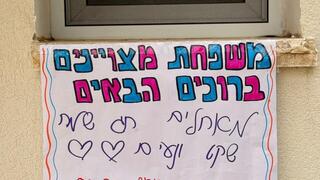 משפחת מצויינים
ברוכים הבאים
מאחלים חג שמח
שקט ונעים ♡♡